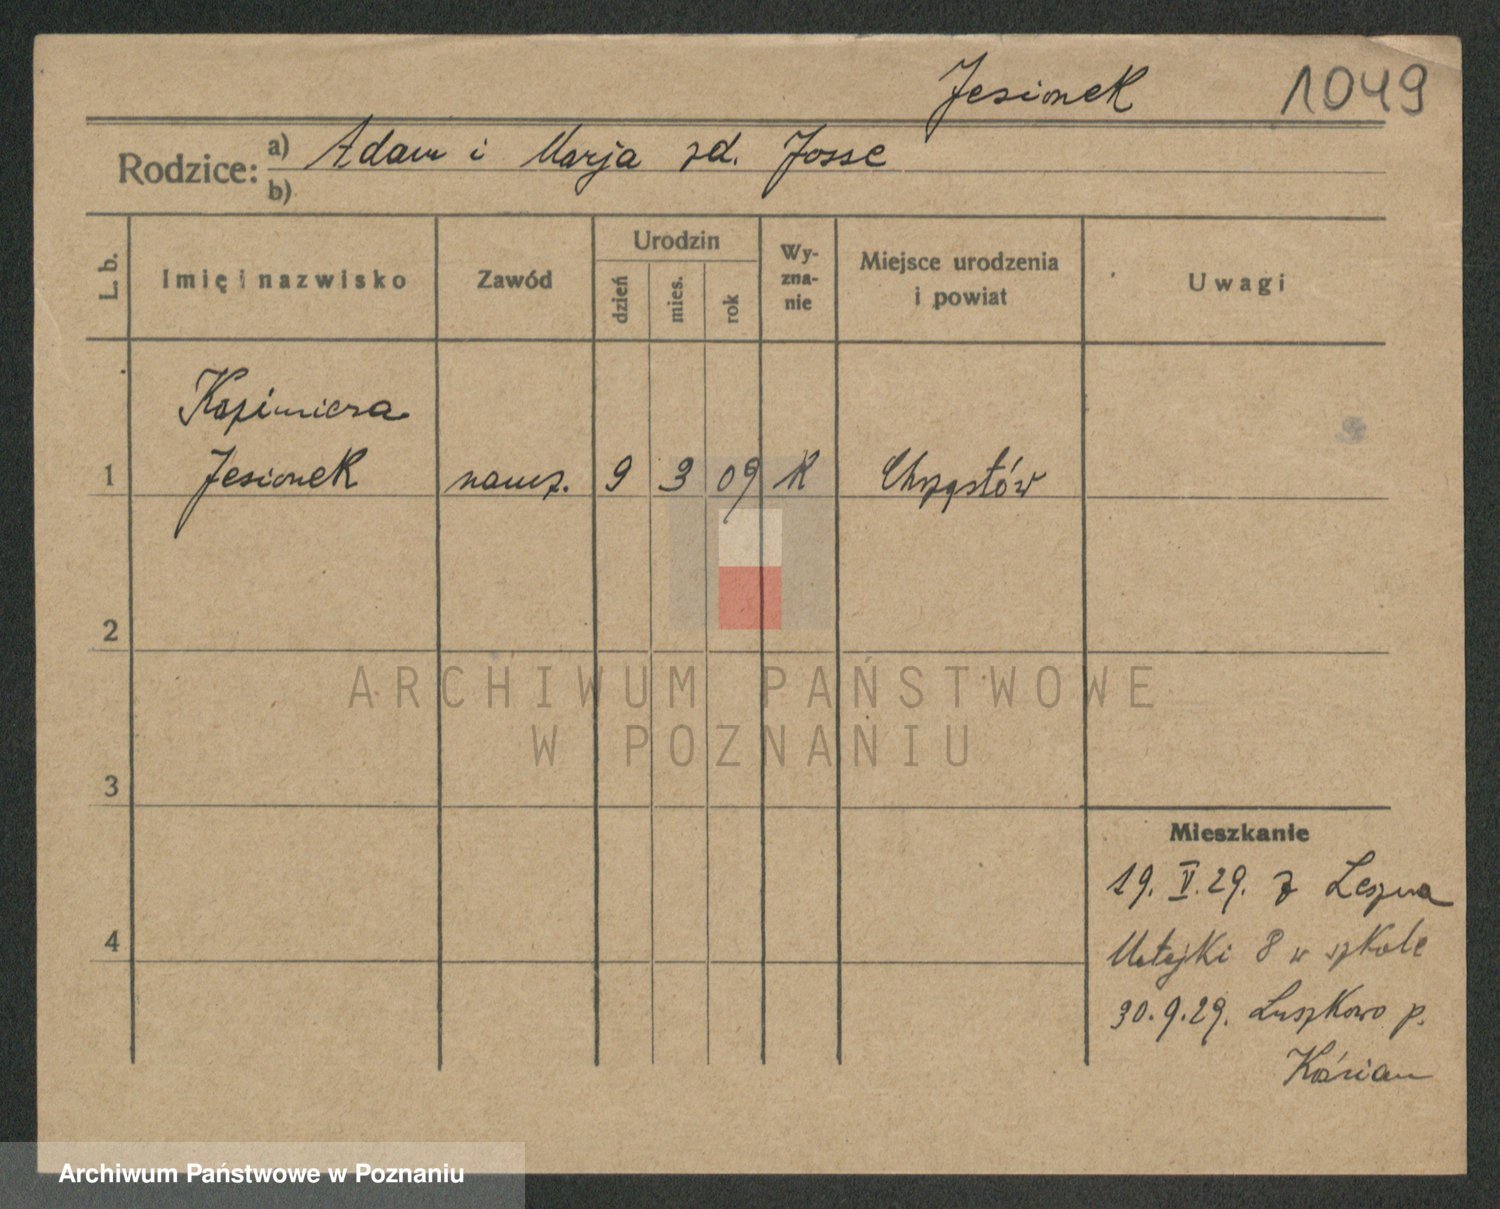 Jesionek 1049
Rodzice: a) Adam i Marja zd. Josse
b)
L. b.
Imię i nazwisko
Zawód
Urodzin
dzień
mies.
rok
Wy-
zna-
nie
Miejsce urodzenia
i powiat
Uwagi
Kazimiera
1 Jesionek naucz. 9 3 09 K Chrząstów
2
ARCHIWUM PAŃSTWOWE
W POZNANIU
3
Mieszkanie
19. V. 29. z Leszna
4
Matejki 8 w szkole
30.9.29. Luszkowo p.
Kościan
Archiwum Państwowe w Poznaniu